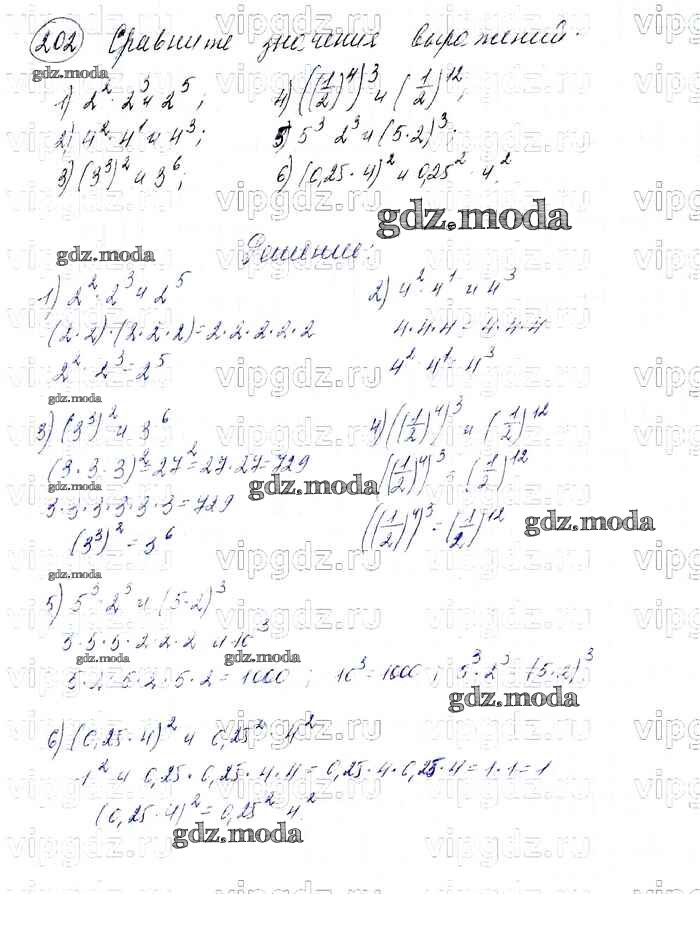 202 Сравните значения выражений.
1) 2² · 2³ и 2⁵;
2) 4² · 4¹ и 4³;
3) (3³)² и 3⁶;
4) ((1/2)⁴)³ и (1/2)¹²;
5) 5³ 2³ и (5·2)³.
6) (0,25 · 4)² и 0,25² · 4²
gdz.moda
gdz.moda
Решение:
gdz.moda
1) 2² · 2³ и 2⁵
(2·2)·(2·2·2)=2·2·2·2·2
2² · 2³ = 2⁵
2) 4² · 4¹ и 4³
4·4·4 = 4·4·4
4² · 4¹ = 4³
gdz.moda
3) (3³)² и 3⁶
(3·3·3)² = 27² = 27·27 = 729
3·3·3·3·3·3 = 729
(3³)² = 3⁶
4) ((1/2)⁴)³ и (1/2)¹²
((1/2)⁴)³ = (1/2)¹²
((1/2)⁴)³ = (1/2)¹²
gdz.moda
gdz.moda
gdz.moda
gdz.moda
5) 5³ · 2³ и (5·2)³
5·5·5·2·2·2 и 10³
gdz.moda
gdz.moda
5·2·5·2·5·2 = 1000 ; 10³ = 1000 ; 5³·2³ = (5·2)³
gdz.moda
6) (0,25 · 4)² и 0,25² · 4²
1² и 0,25 · 0,25 · 4 · 4 = 0,25 · 4 · 0,25 · 4 = 1 · 1 = 1
(0,25 · 4)² = 0,25² · 4²
gdz.moda
vipgdz.ru